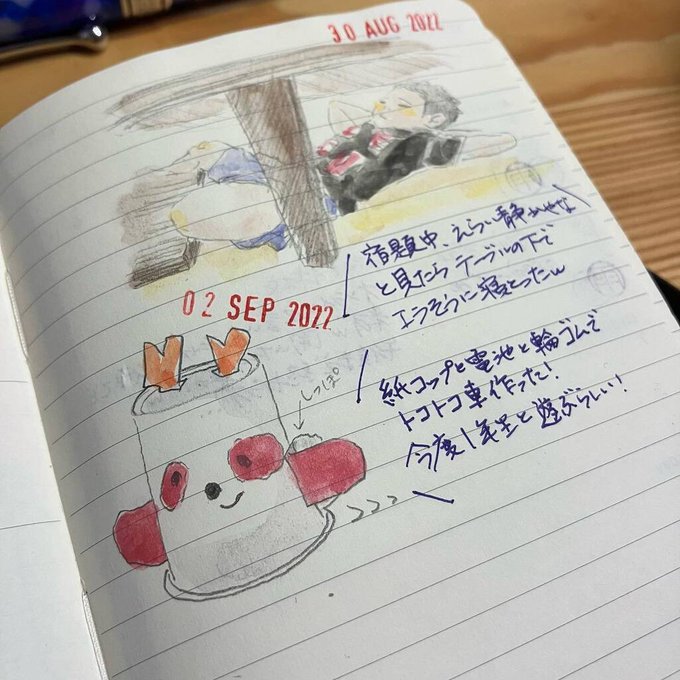 30 AUG 2022
宿題中、えらい静かやな
と見たらテーブルの下で
エラそうに寝とったw
02 SEP 2022
しっぽ
紙コップと電池と輪ゴムで
トコトコ車作った！
今度1年生と遊ぶらしい！